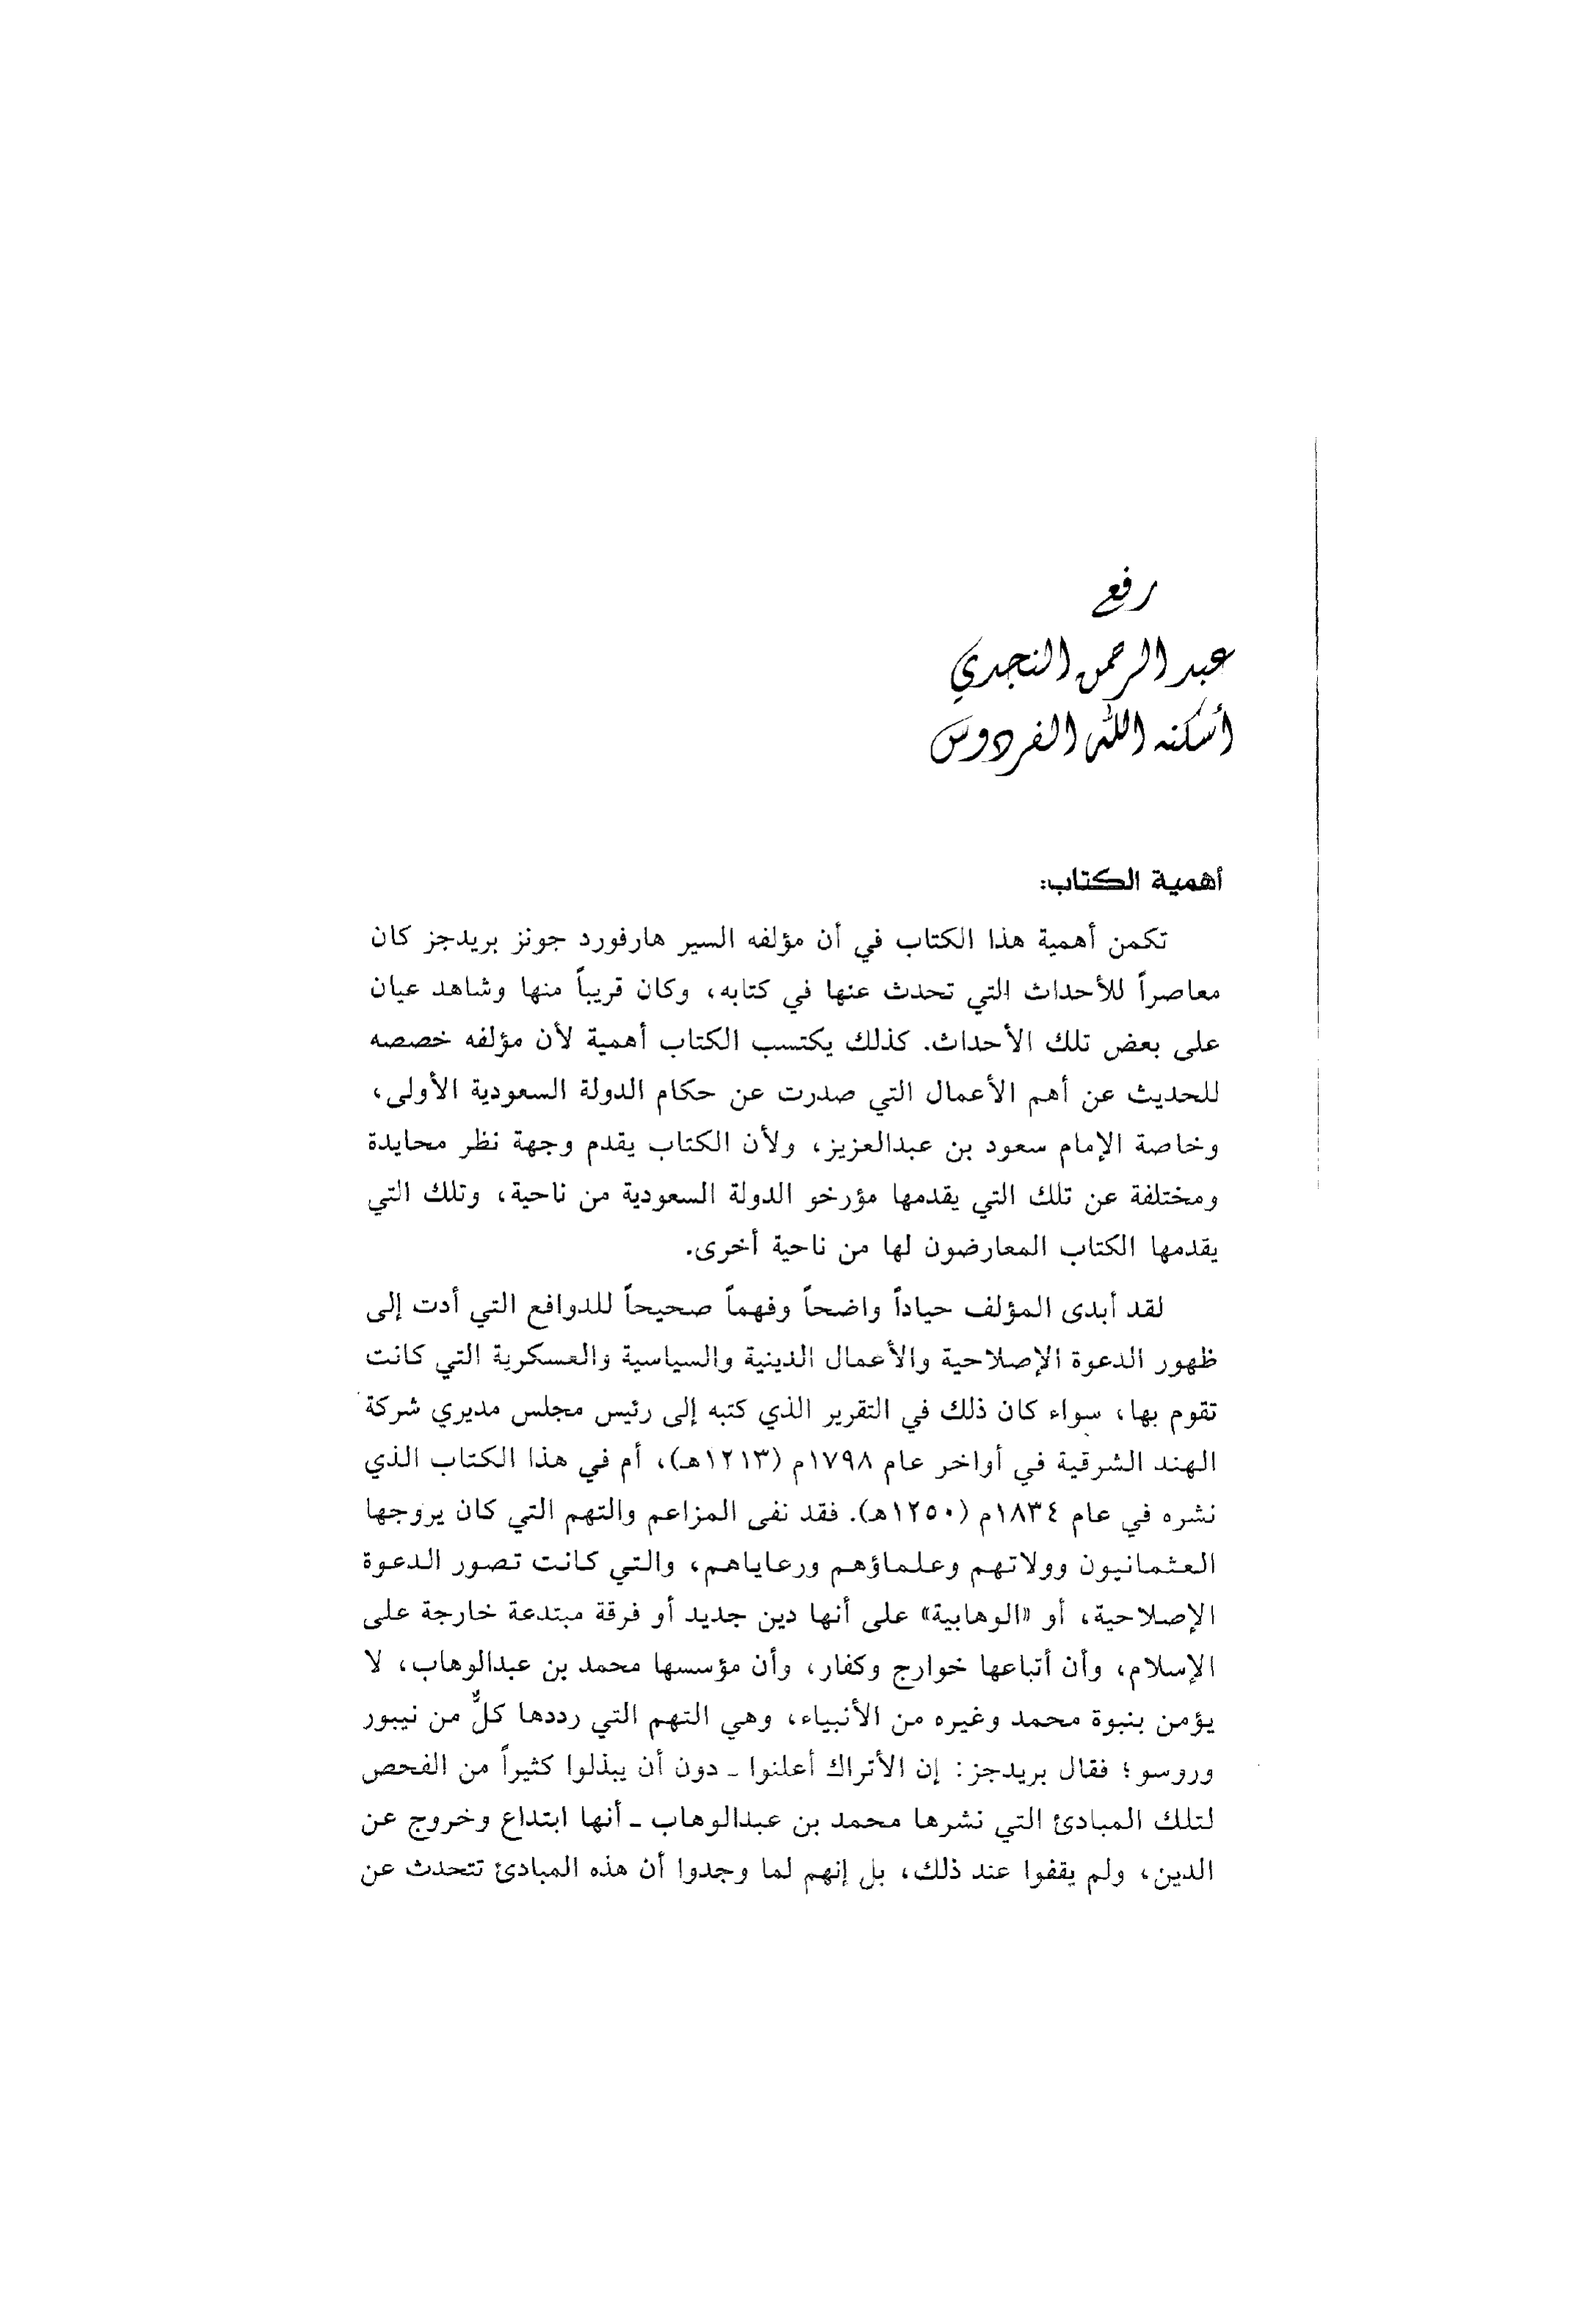 رفع
عبد الرحمن النجدي
أسكنه الله الفردوس
أهمية الكتاب:
تكمن أهمية هذا الكتاب في أن مؤلفه السير هارفورد جونز بريدجز كان
معاصراً للأحداث التي تحدث عنها في كتابه، وكان قريباً منها وشاهد عيان
على بعض تلك الأحداث. كذلك يكتسب الكتاب أهمية لأن مؤلفه خصصه
للحديث عن أهم الأعمال التي صدرت عن حكام الدولة السعودية الأولى،
وخاصة الإمام سعود بن عبدالعزيز، ولأن الكتاب يقدم وجهة نظر محايدة
ومختلفة عن تلك التي يقدمها مؤرخو الدولة السعودية من ناحية، وتلك التي
يقدمها الكتاب المعارضون لها من ناحية أخرى.
لقد أبدى المؤلف حياداً واضحاً وفهماً صحيحاً للدوافع التي أدت إلى
ظهور الدعوة الإصلاحية والأعمال الدينية والسياسية والعسكرية التي كانت
تقوم بها، سواء كان ذلك في التقرير الذي كتبه إلى رئيس مجلس مديري شركة
الهند الشرقية في أواخر عام ١٧٩٨م (١٢١٣هـ)، أم في هذا الكتاب الذي
نشره في عام ١٨٣٤م (١٢٥٠هـ). فقد نفى المزاعم والتهم التي كان يروجها
العثمانيون وولاتهم وعلماؤهم ورعاياهم، والتي كانت تصور الدعوة
الإصلاحية، أو «الوهابية» على أنها دين جديد أو فرقة مبتدعة خارجة على
الإسلام، وأن أتباعها خوارج وكفار، وأن مؤسسها محمد بن عبدالوهاب، لا
يؤمن بنبوة محمد وغيره من الأنبياء، وهي التهم التي رددها كلٌّ من نيبور
وروسو؛ فقال بريدجز: إن الأتراك أعلنوا ـ دون أن يبذلوا كثيراً من الفحص
لتلك المبادئ التي نشرها محمد بن عبدالوهاب ـ أنها ابتداع وخروج عن
الدين، ولم يقفوا عند ذلك، بل إنهم لما وجدوا أن هذه المبادئ تتحدث عن